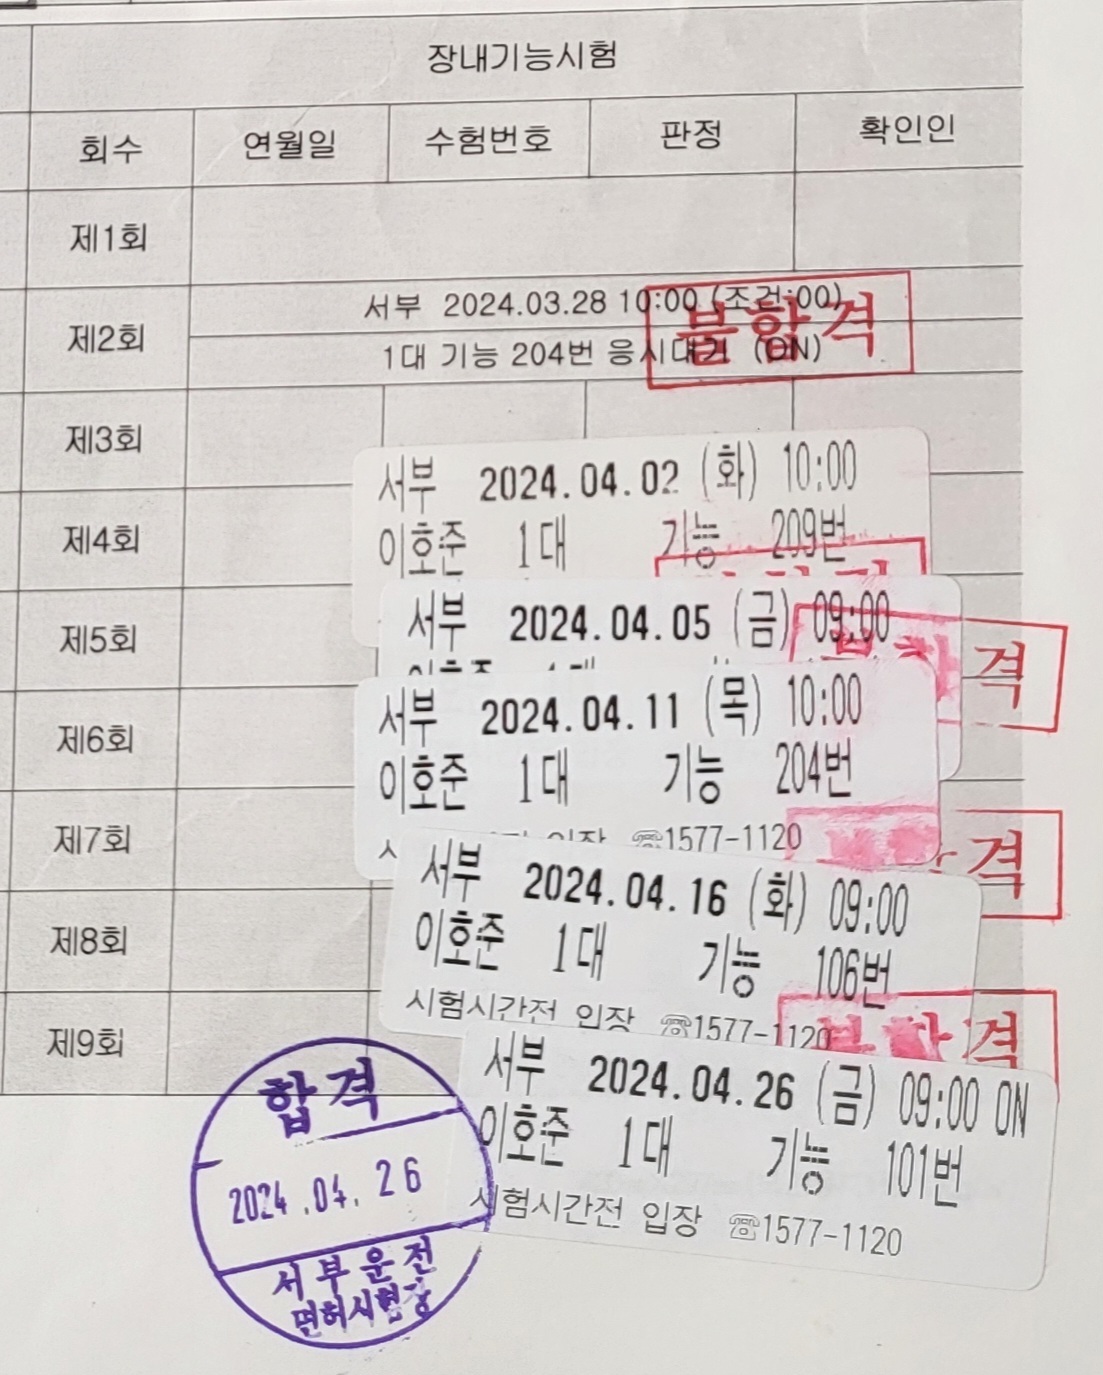 장내기능시험
회수 연월일 수험번호 판정 확인인
제1회
제2회
서부 2024.03.28 10:00 (조건:00)
1대 기능 204번 응시대기 (ON)
불합격
제3회
서부 2024.04.02 (화) 10:00
이호준 1대 기능 209번
제4회
서부 2024.04.05 (금) 09:00
격
제5회
서부 2024.04.11 (목) 10:00
이호준 1대 기능 204번
☏1577-1120
격
제6회
제7회
서부 2024.04.16 (화) 09:00
이호준 1대 기능 106번
시험시간전 입장 ☏1577-1120
불합격
제8회
제9회
서부 2024.04.26 (금) 09:00 ON
이호준 1대 기능 101번
시험시간전 입장 ☏1577-1120
합격
2024.04.26
서부운전
면허시험장